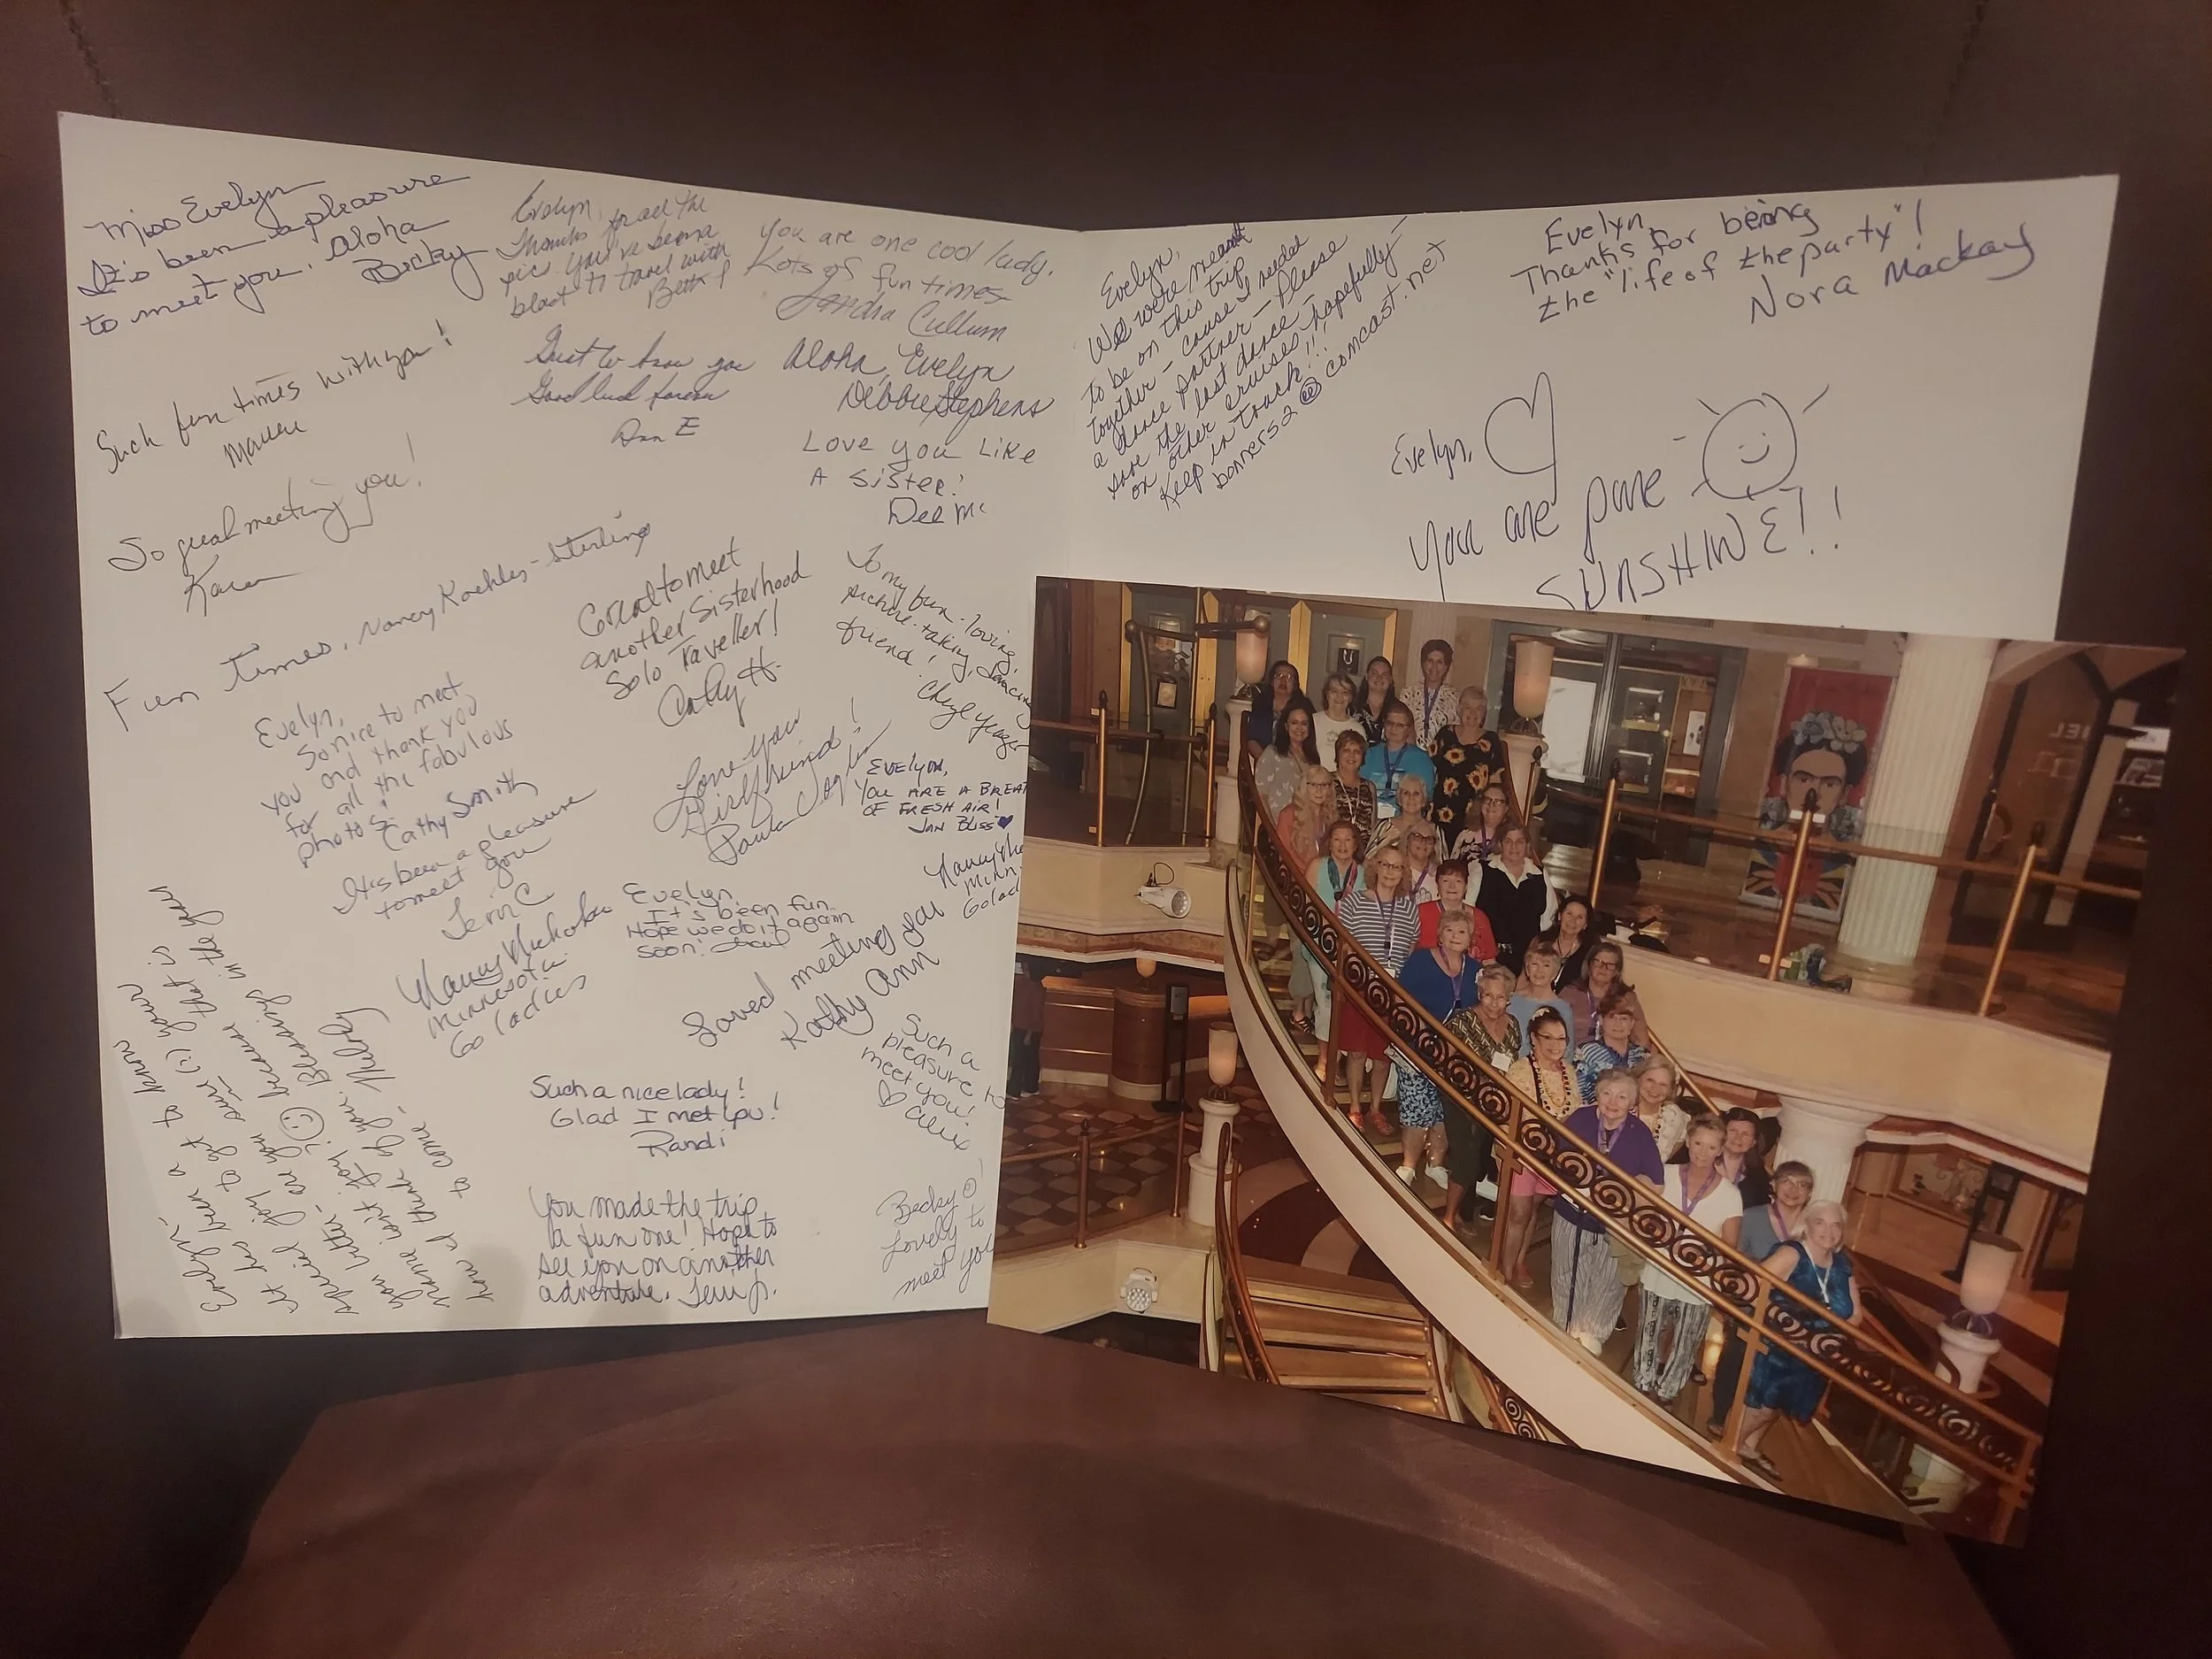 Miss Evelyn
It's been a pleasure
to meet you. Aloha
Becky
Evelyn,
Thanks for all the
pics you've been a
blast to travel with
Beth P
You are one cool lady.
Lots of fun times
Sandra Cullum
Such fun times with you!
Great to know you
Good luck forever
Ann E
Aloha, Evelyn
Debbie Stephens
Love you Like
A Sister!
Dee Mc
So great meeting you!
Karen
Fun Times, Nancy Koehler-Sterling
Great to meet
another Sisterhood
Solo Traveller!
Cathy H.
To my fun-loving,
picture-taking, dancing
friend!
Cheryl Yeager
Evelyn,
So nice to meet
you and thank you
for all the fabulous
photos!
Cathy Smith
Love you
Girlfriend!
Paula
Evelyn,
You are a breat
of fresh air!
Jan Bliss
It's been a pleasure
to meet you
Terri C
Nancy
Minnesota
Go ladies
Evelyn,
It's been fun.
Hope we do it again
soon!
Nancy
Minn
Go lad
Loved meeting you
Kathy Ann
Such a
pleasure to
meet you!
Such a nice lady!
Glad I met you!
Randi
You made the trip
a fun one! Hope to
see you on another
adventure. Terri Jr.
Becky
Lovely to
meet you
Evelyn-
It has been a
special joy to get to know
you better - are you sure (:) your
name isn't Joy? because that is
how I think of you. Blessings in the years
to come - Melody
Evelyn,
We were meant
to be on this trip
together - cause I needed
a dance partner - Please
save the last dance -
on other cruises, hopefully -
Keep in touch!!
bonners2@comcast.net
Evelyn,
Thanks for being
the "life of the party"!
Nora Mackay
Evelyn,
You are pure
SUNSHINE!!